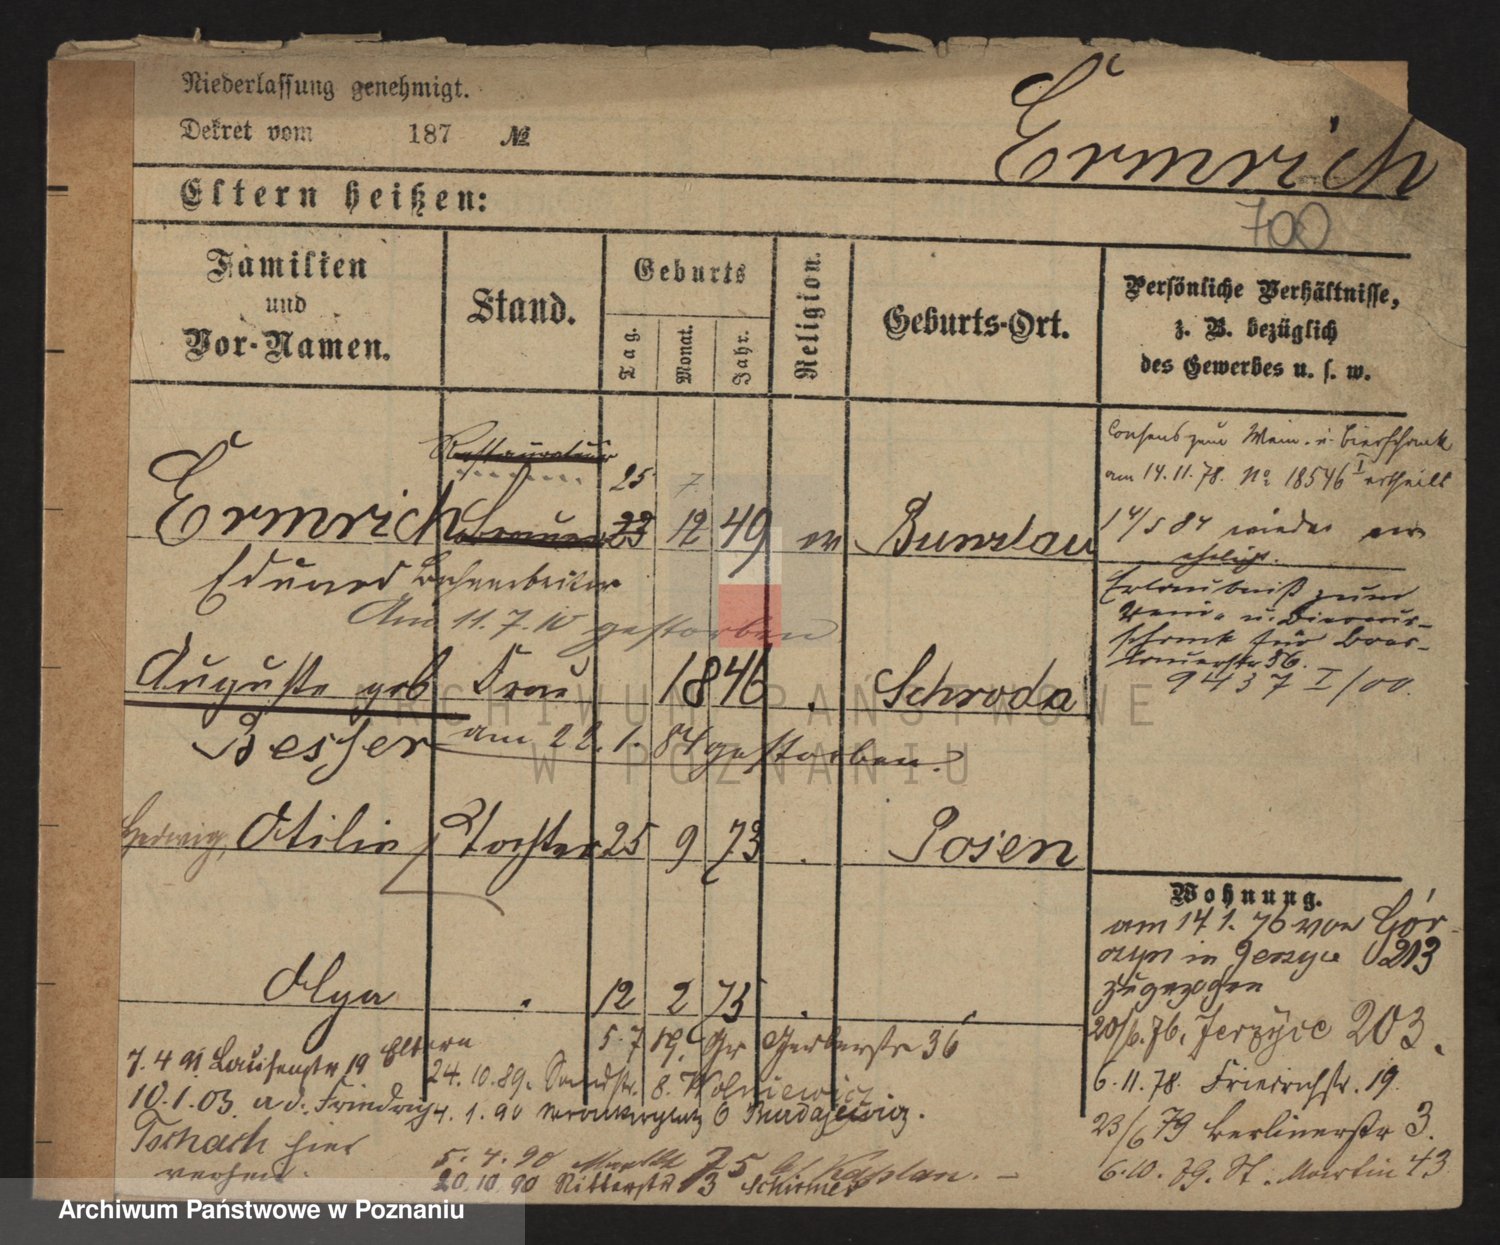 Niederlassung genehmigt.
Dekret vom 187 №
Ermrich
700
Eltern heißen:
Familien
und
Vor-Namen.
Stand.
Geburts
Tag.
Monat.
Jahr.
Religion.
Geburts-Ort.
Persönliche Verhältnisse,
z. B. bezüglich
des Gewerbes u. s. w.
Restaurateur
25 7
Ermrich 23 12 49 ev Bunzlau
Eduard
Am 11.7.10 gestorben
Consens zum Wein- u. Bierschank
am 14.11.78. No 18546 I ertheilt
14/5 84 wieder ver
ehelicht.
Erlaubniß zum
Wein- u. Bieraus-
schank für
56.
9437 I/00.
Auguste geb Frau 1846 . Schroda
Besser am 22.1.84 gestorben.
Hedwig, Otilie Tochter 25 9 73 . Posen
Olga . 12 2 75 .
Wohnung.
am 14 1. 76 von Gór-
czyn in Jerzyce 213
zugezogen
20/6. 76. Jerzyce 203.
6.11.78. Friedrichstr. 19.
23/6 79 Berlinerstr 3.
6.10.79. St. Martin 43
5.7 89. Gr Gerberstr 36
7.4 91 19 Eltern
24.10.89. Sandstr. 8. Wolniewicz
10.1.03. a d. Friedrich
4.1.90 6 Burdajewicz.
Tschach hier
5.4.90 Markt 75 Kaplan. —
20.10.90 Ritterstr 3 Schirmer
ARCHIWUM PAŃSTWOWE
W POZNANIU
Archiwum Państwowe w Poznaniu